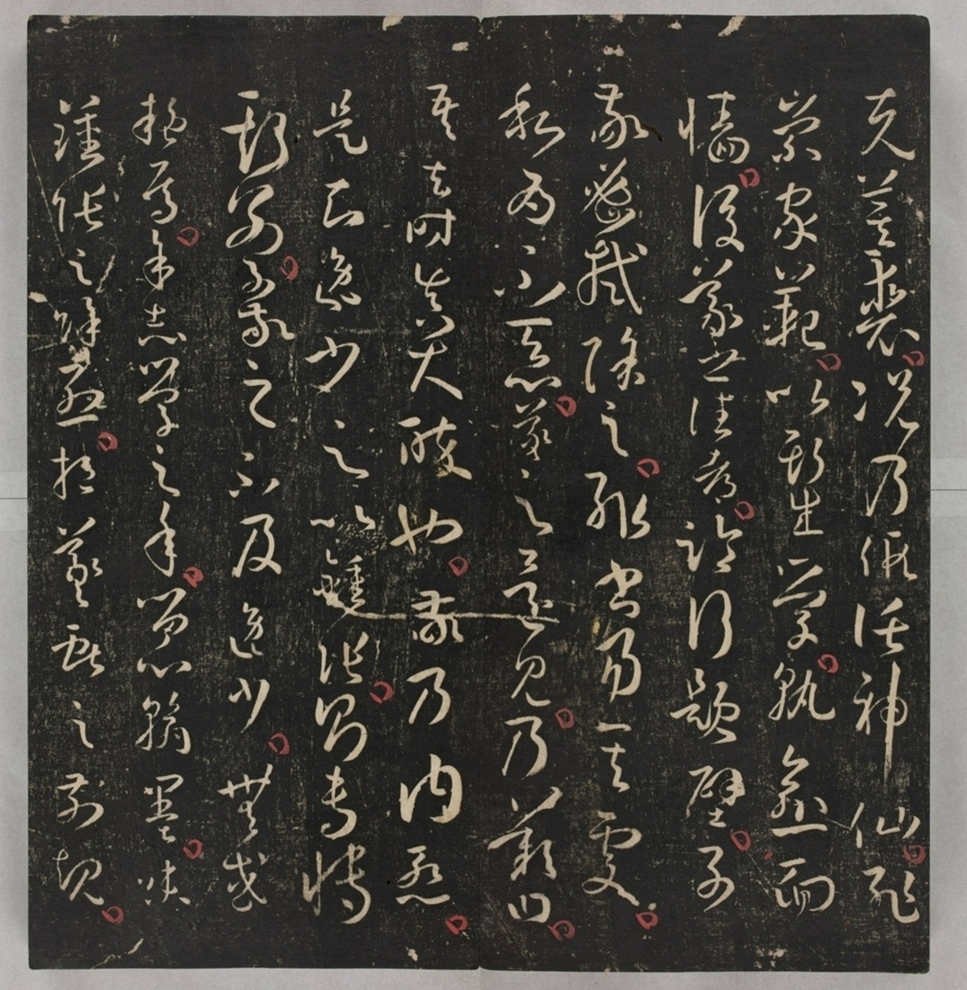 克箕裘況乃假託神仙恥
崇家範以斯成學孰愈面
牆後羲之往都臨行題壁子
敬密拭除之輒書易其處
私為不惡羲之還見乃歎曰
吾去時真大醉也敬乃內慙
是知逸少之比鍾張則專博
斯別子敬之不及逸少無或
疑焉余志學之年留心翰墨味
鍾張之餘烈挹羲獻之前規